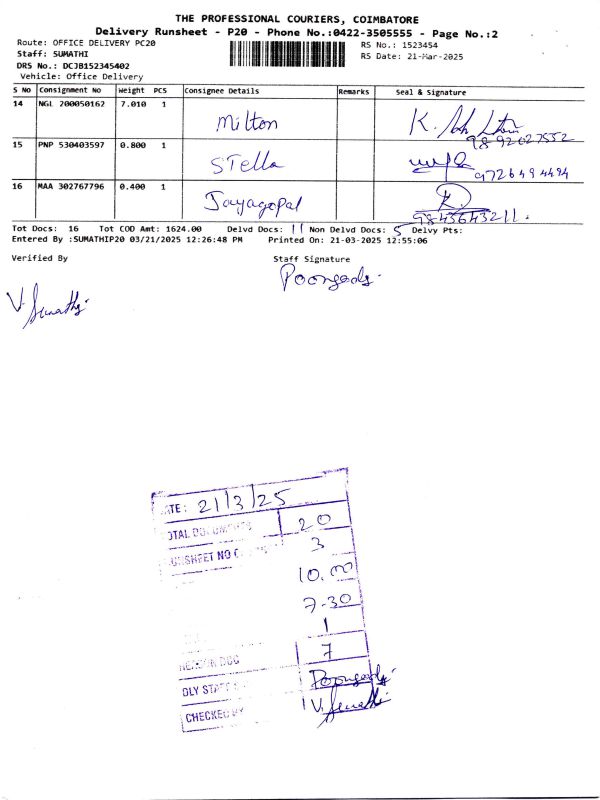 THE PROFESSIONAL COURIERS, COIMBATORE
Delivery Runsheet - P20 - Phone No.:0422-3505555 - Page No.:2
Route: OFFICE DELIVERY PC20
RS No.: 1523454
Staff: SUMATHI
RS Date: 21-Mar-2025
DRS No.: DCJB152345402
Vehicle: Office Delivery
S No Consignment No Weight PCS Consignee Details Remarks Seal & Signature
14 NGL 200050162 7.010 1 Milton K.
9892027552
15 PNP 530403597 0.800 1 Stella
9726494494
16 MAA 302767796 0.400 1 Jayagopal
9843643211
Tot Docs: 16 Tot COD Amt: 1624.00 Delvd Docs: 11 Non Delvd Docs: 5 Delvy Pts:
Entered By :SUMATHIP20 03/21/2025 12:26:48 PM Printed On: 21-03-2025 12:55:06
Verified By Staff Signature
Poongodi
V. Sumathi
DATE: 21/3/25
TOTAL DOCUMENTS 20
RUNSHEET NO 3
10.00
7-30
1
7
DLY STAFF Poongodi
CHECKED BY V. Sumathi